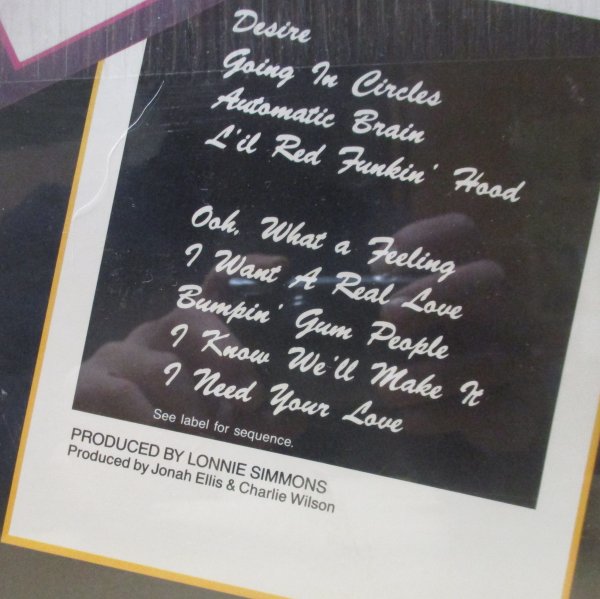 Desire
Going In Circles
Automatic Brain
L'il Red Funkin' Hood
Ooh, What a Feeling
I Want A Real Love
Bumpin' Gum People
I Know We'll Make It
I Need Your Love
See label for sequence.
PRODUCED BY LONNIE SIMMONS
Produced by Jonah Ellis & Charlie Wilson